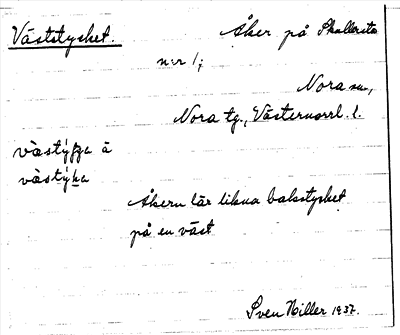 Väststycket.
Åker på Skullersta
n:r 1;
Nora sn.,
Nora tg., Västernorrl. l.
våstýka
Åkern lär likna bakstycket
på en väst
Sven Hiller 1937.